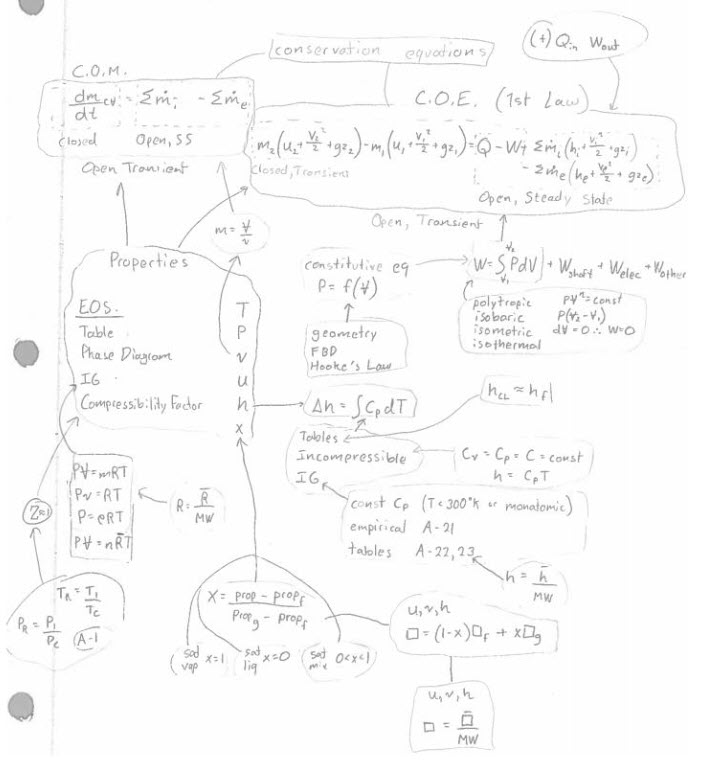 conservation equations
(+) Q_in W_out
C.O.M.
dm_cv/dt = Σṁ_i - Σṁ_e
closed Open, SS
Open Transient
C.O.E. (1st Law)
m₂(u₂+V₂²/2+gz₂)-m₁(u₁+V₁²/2+gz₁)=Q-W+Σṁ_i(h_i+V_i²/2+gz_i)
-Σṁ_e(h_e+V_e²/2+gz_e)
Closed, Transient
Open, Steady State
Open, Transient
m=V/v
Properties
EOS.
Table
Phase Diagram
IG
Compressibility Factor
T
P
v
u
h
x
constitutive eq
P=f(V)
geometry
FBD
Hooke's Law
W=∫PdV + W_shaft + W_elec + W_other
V₂
V₁
polytropic PVⁿ=const
isobaric P(V₂-V₁)
isometric dV=0 ∴ W=0
isothermal
Δh=∫C_p dT
h_CL ≈ h_f|
Tables
Incompressible
IG
C_v=C_p=C=const
h=C_pT
const C_p (T<300°K or monatomic)
empirical A-21
tables A-22,23
h=h̄/MW
PV=mRT
Pv=RT
P=ρRT
PV=nR̄T
R=R̄/MW
Z≈1
T_R=T_1/T_C
P_R=P_1/P_C
A-1
X=prop-prop_f/prop_g-prop_f
sat vap x=1
sat liq x=0
sat mix 0<x<1
u,v,h
□=(1-x)□_f+x□_g
u,v,h
□=□̄/MW